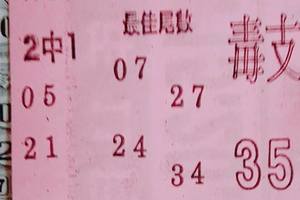 最佳尾數
2中1
07
05
27
21
24
34
35